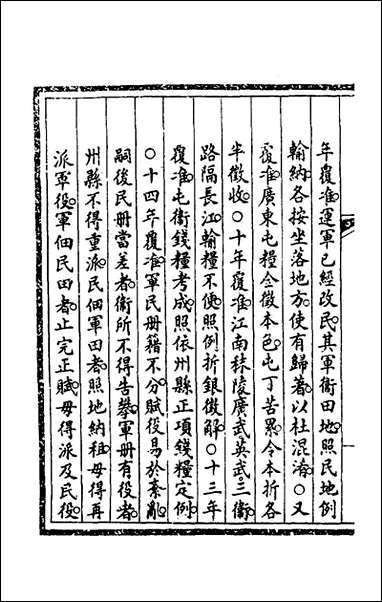 年覆准運軍已經改民其軍衛田地照民地例
輸納各按坐落地方使有歸著以杜混淆○又
覆准廣東屯糧全徵本色屯丁苦累令本折各
半徵收○十年覆准江南秣陵廣武英武三衛
路隔長江輸糧不便照例折銀徵解○十三年
覆准屯衛錢糧考成照依州縣正項錢糧定例
○十四年覆准軍民册籍不分賦役易於紊亂
嗣後民册當差者衛所不得告攀軍册有役者
州縣不得重派民佃軍田者照地納租毋得再
派軍役軍佃民田者止完正賦毋得派及民役